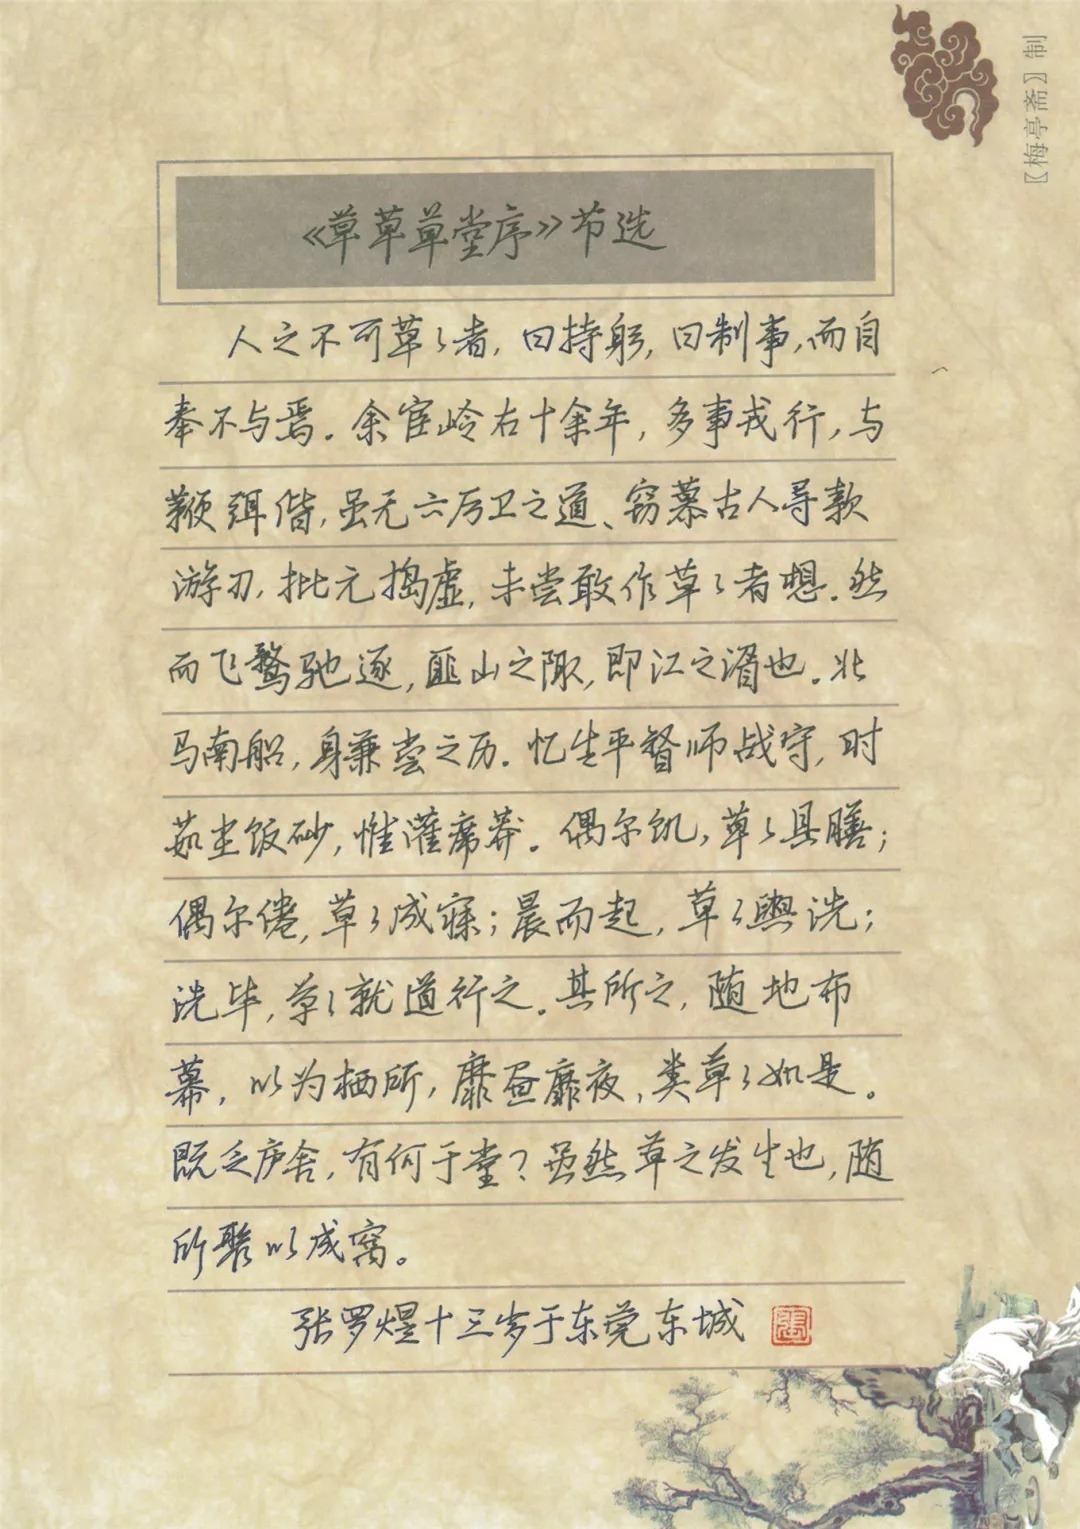 〖梅亭斋〗制
《草草草堂序》节选
人之不可草々者，曰持躬，曰制事，而自
奉不与焉。余宦岭右十余年，多事戎行，与
鞭弭偕，虽无六历卫之道、窃慕古人导款
游刃，批亢捣虚，未尝敢作草々者想。然
而飞鹜驰逐，匪山之陬，即江之湄也。北
马南船，身兼尝之历。忆生平督师战守，时
茹尘饭砂，惟灌席莽。偶尔饥，草々具膳；
偶尔倦，草々成寐；晨而起，草々舆洗；
洗毕，草々就道行之。其所之，随地布
幕，以为栖所，靡昼靡夜，类草々如是。
既乏庐舍，有何于堂？虽然草之发生也，随
所聚以成窝。
张罗煜十三岁于东莞东城